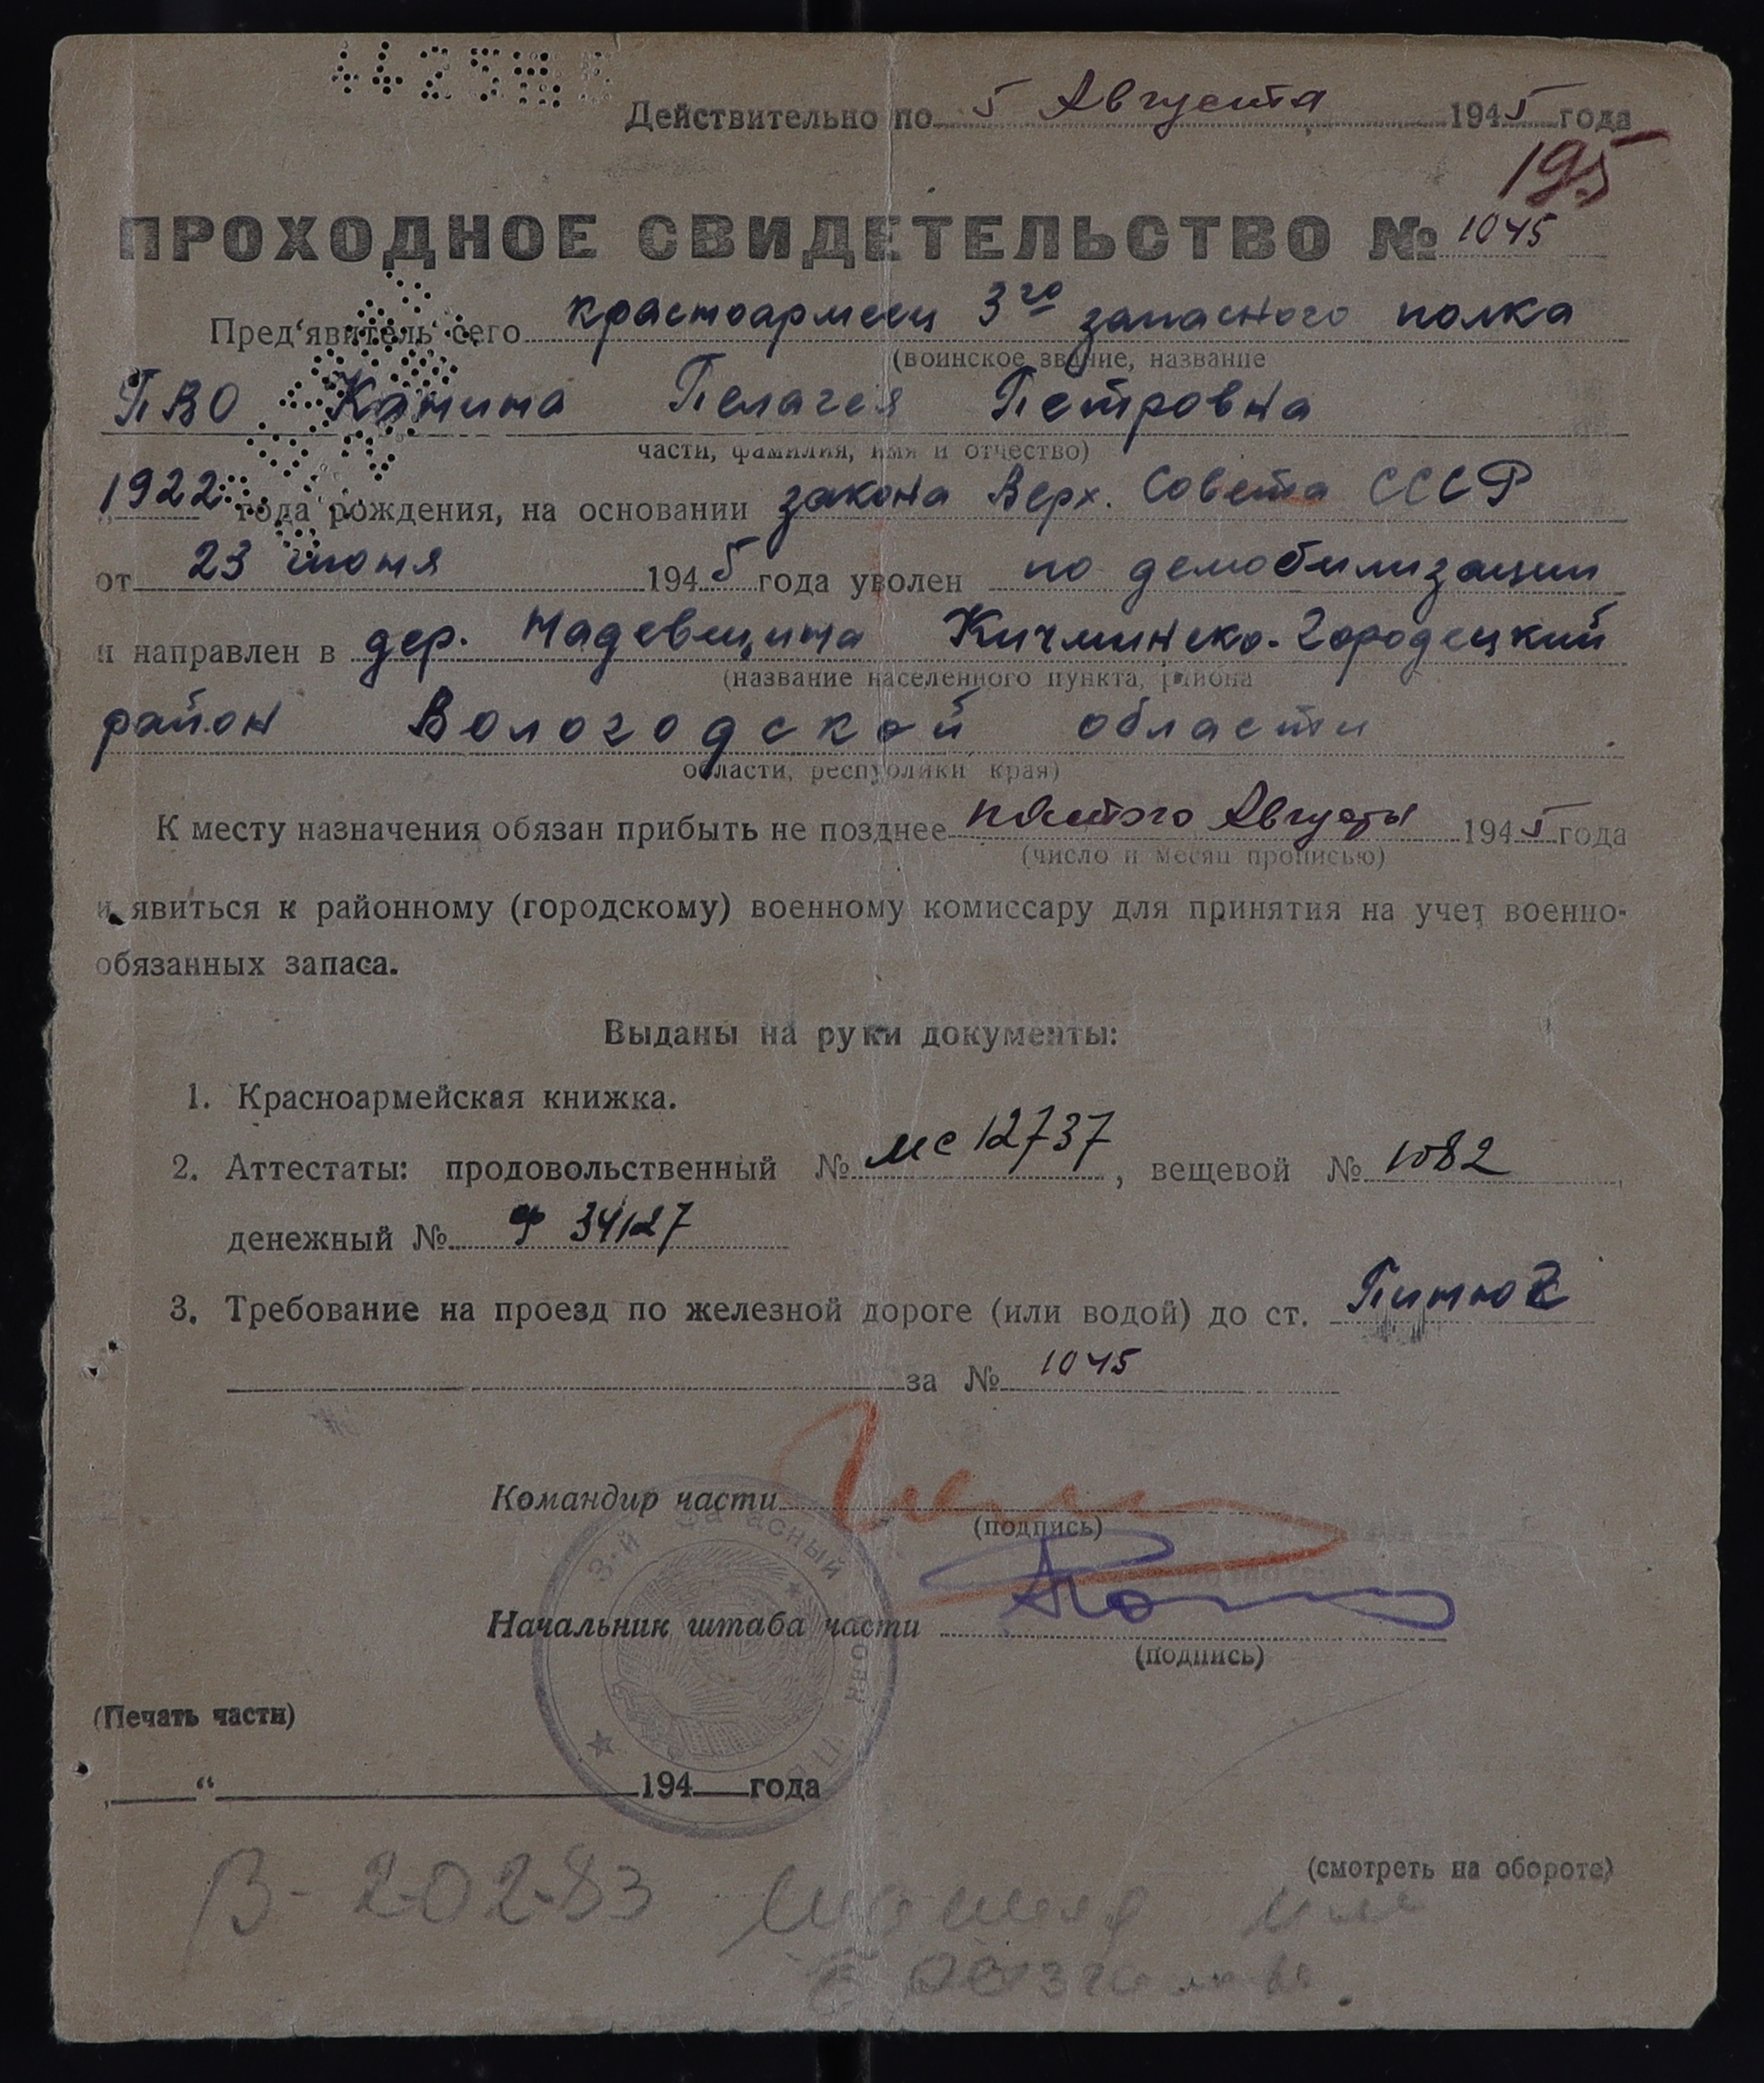 Действительно по 5 Августа 1945 года
195
ПРОХОДНОЕ СВИДЕТЕЛЬСТВО № 1045
Пред'явитель сего красноармеец 3го запасного полка
(воинское звание, название
ПВО Пелагея Петровна
части, фамилия, имя и отчество)
1922 года рождения, на основании закона Верх. Совета СССР
от 23 июня 1945 года уволен по демобилизации
и направлен в дер. Кичминско-Городецкий
(название населенного пункта, района
район Вологодской области
области, республики края)
К месту назначения обязан прибыть не позднее пятого Августа 1945 года
(число и месяц прописью)
и явиться к районному (городскому) военному комиссару для принятия на учет военно-
обязанных запаса.
Выданы на руки документы:
1. Красноармейская книжка.
2. Аттестаты: продовольственный № мс 12737, вещевой № 1082
денежный № Ф 34127
3. Требование на проезд по железной дороге (или водой) до ст. Пинюг
за № 1045
Командир части
(подпись)
Начальник штаба части
(подпись)
3-й Запасный полк ПВО
(Печать части)
„ “ 194 года
(смотреть на обороте)
В-20283